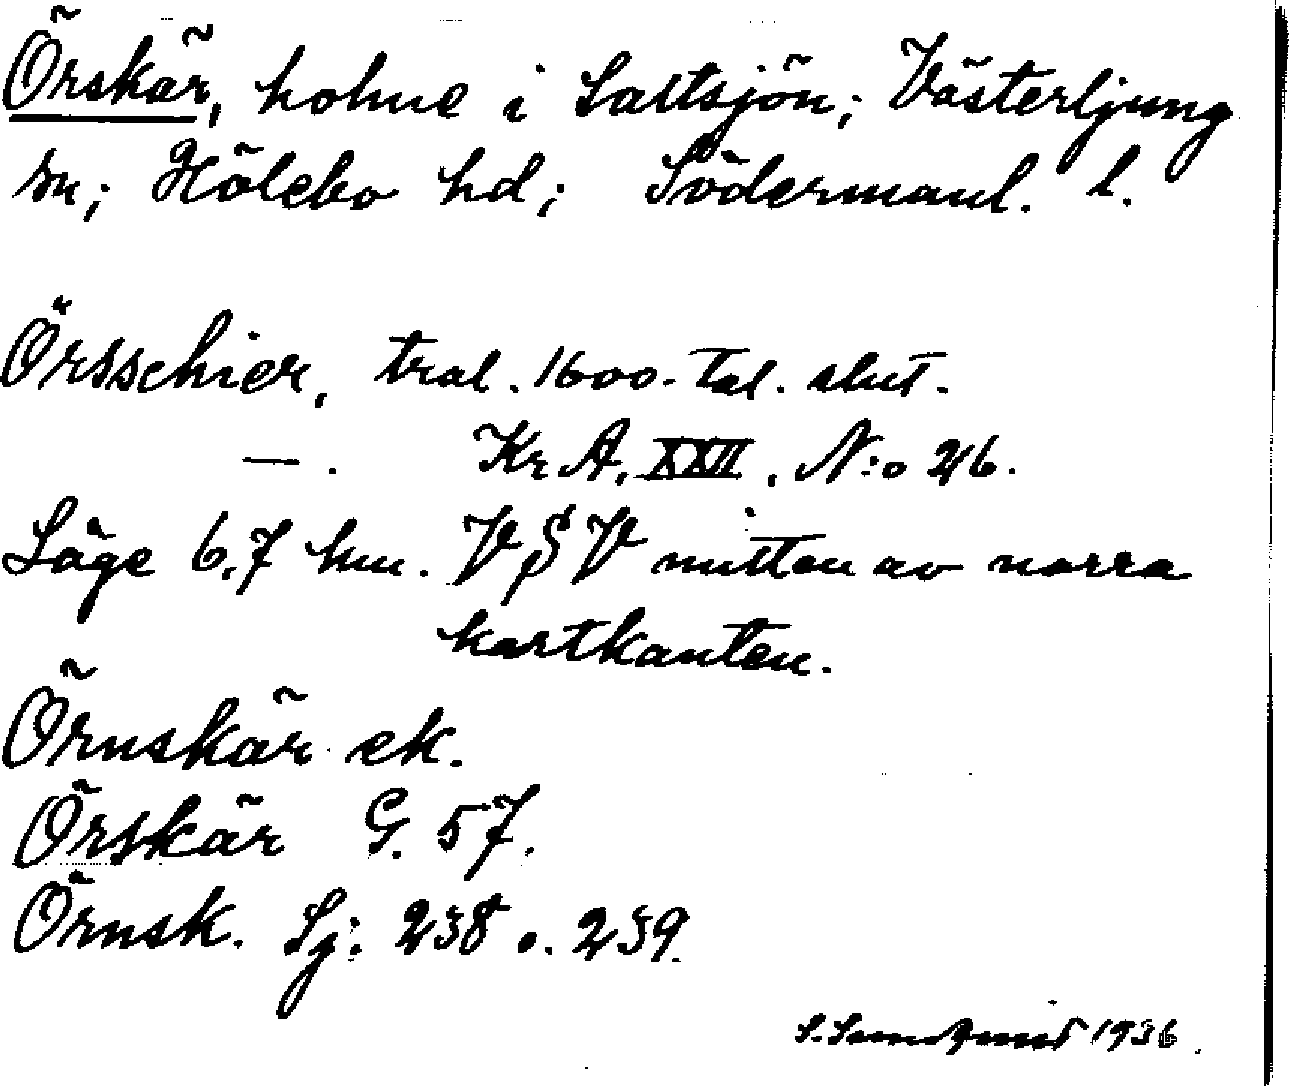 Örskär, holme i Saltsjön; Västerljung
sn; Hölebo hd; Södermanl. l.
Örsschier, tral. 1600-tal. slut.
— . Kr A, XXII, N:o 26.
Läge 6,7 km. VSV mitten av norra
kartkanten.
Örnskär ek.
Örskär G. 57.
Örnsk. Sj: 238 o. 239.
S. 1936.